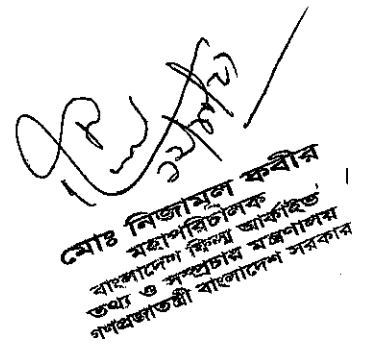 মোঃ নিজামুল কবীর
মহাপরিচালক
বাংলাদেশ ফিল্ম আর্কাইভ
তথ্য ও সম্প্রচার মন্ত্রণালয়
গণপ্রজাতন্ত্রী বাংলাদেশ সরকার